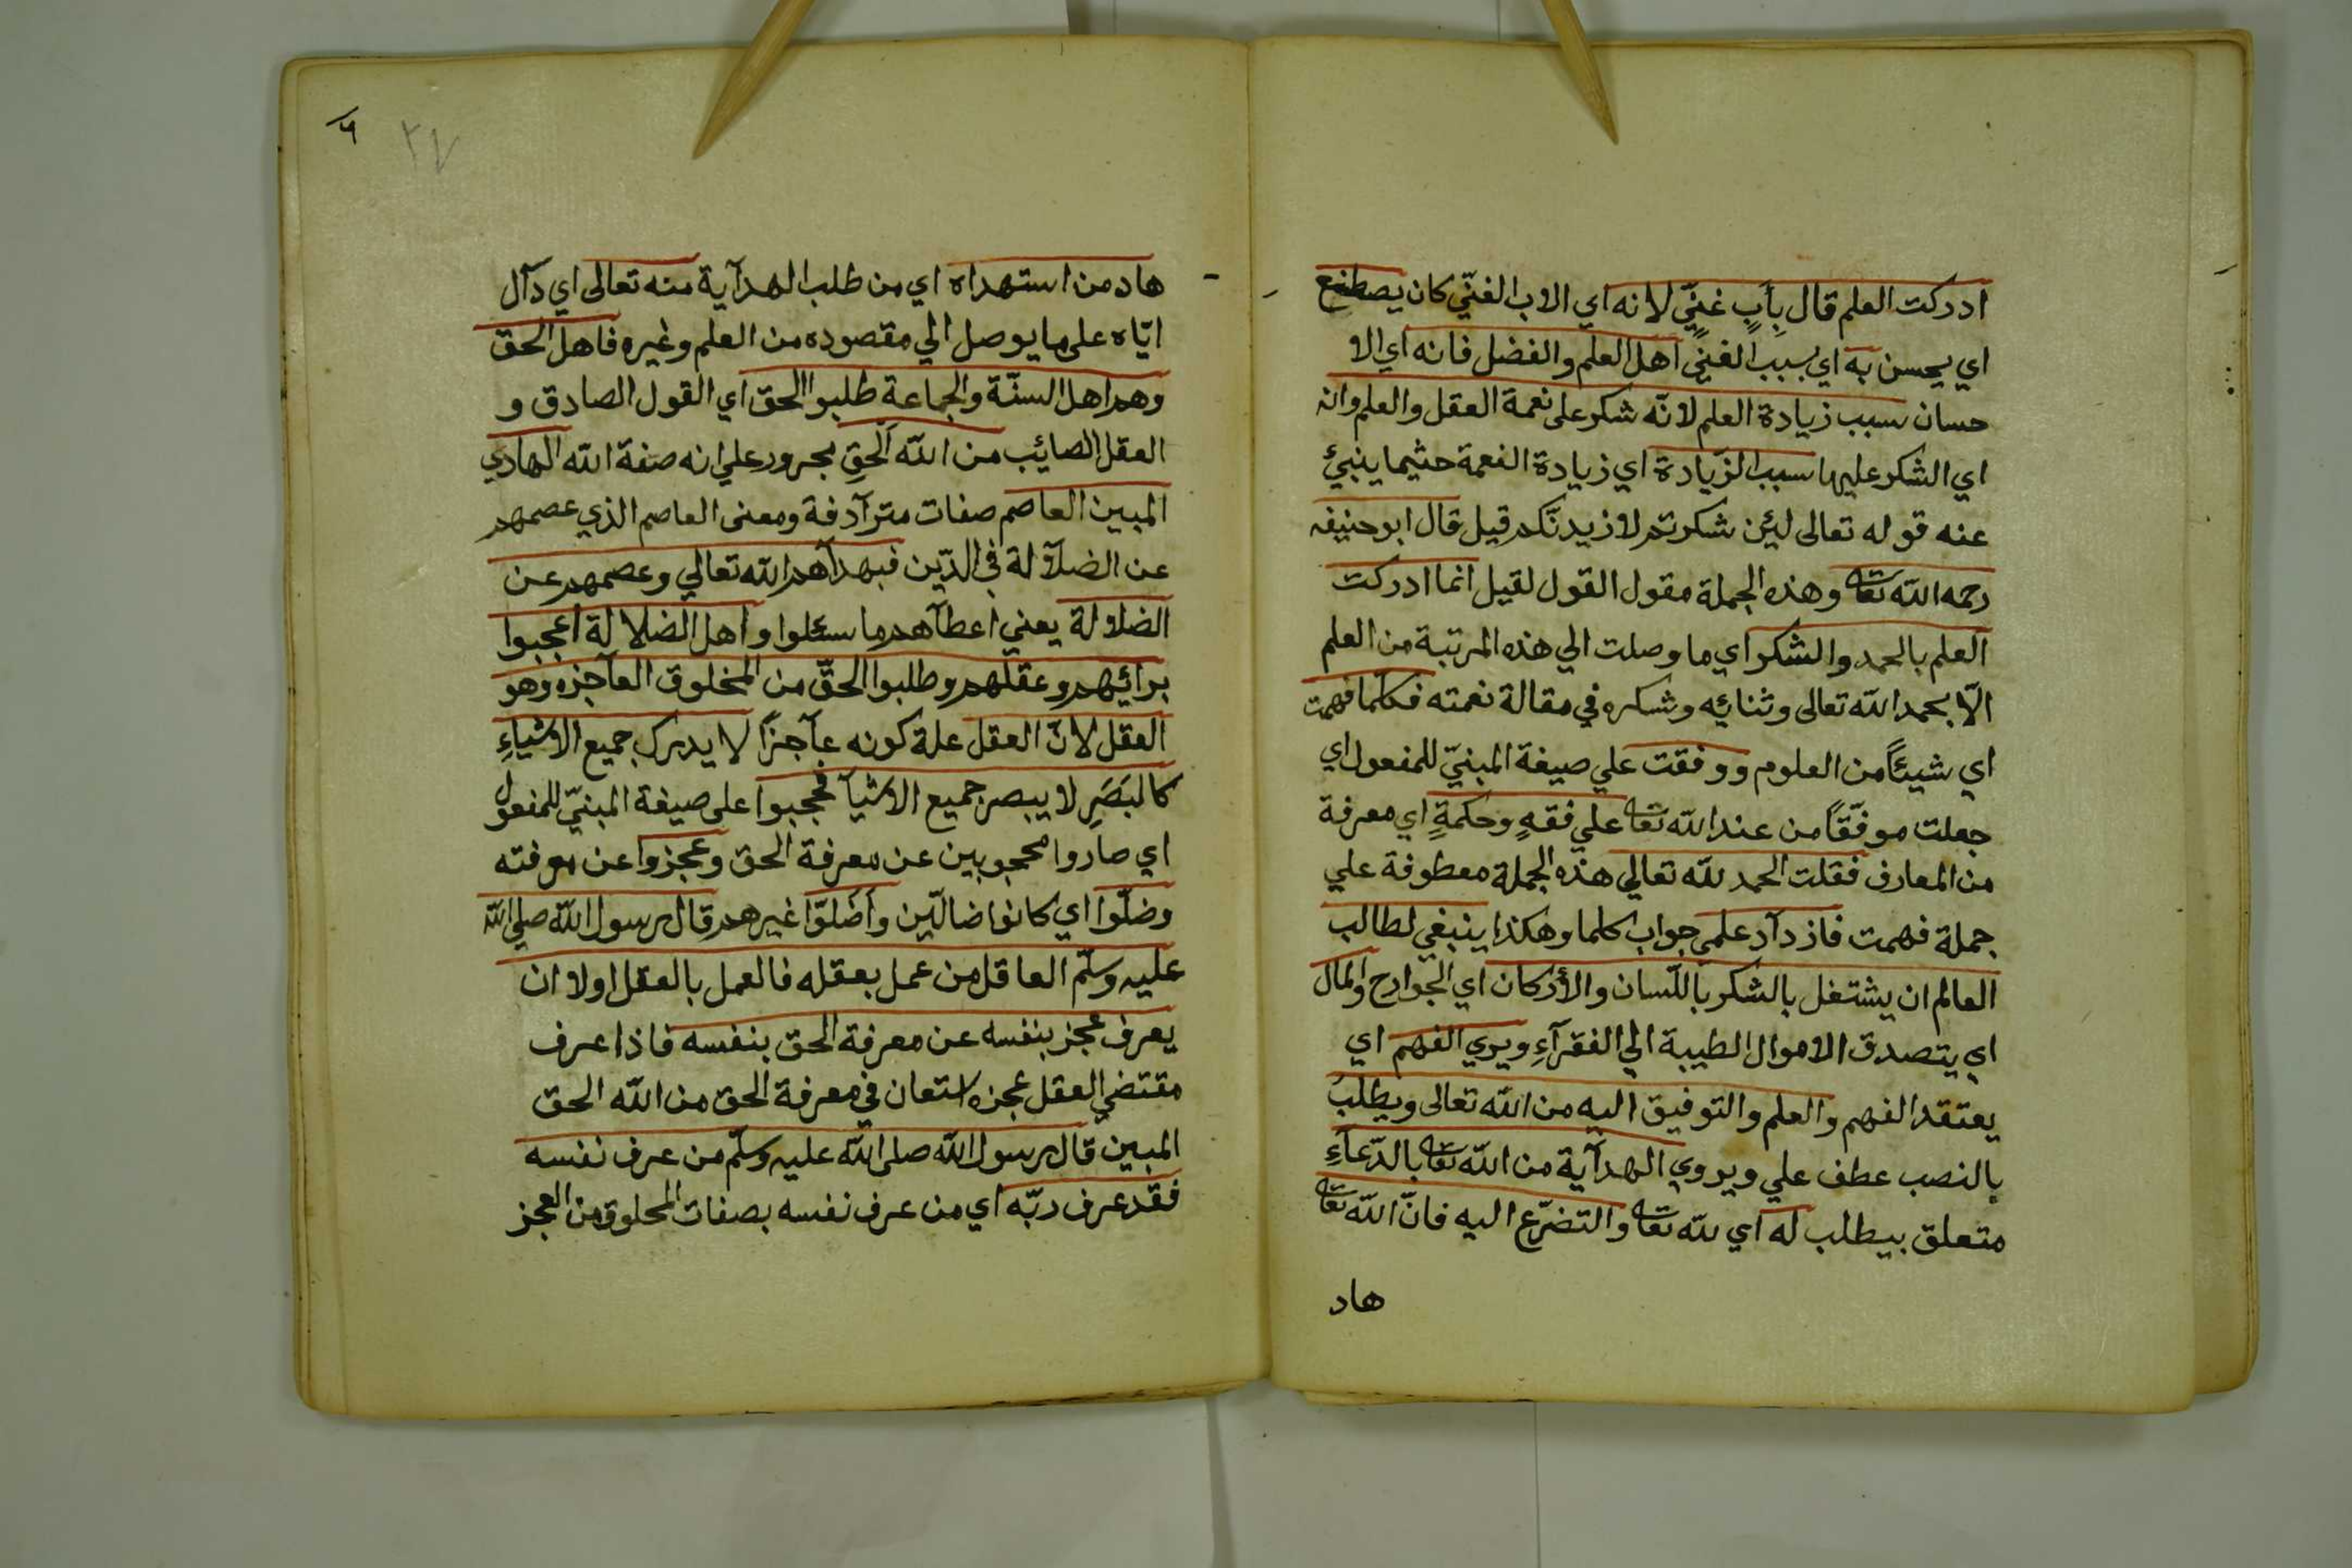 ادركت العلم قال بِأبٍ غنيٍّ لانه اي الاب الغنّي كان يصطنع
اي يحسن به اي بسبب الغنيٍّ اهل العلم والفضل فانه اي الا
حسان سبب زيادة العلم لانّه شكر على نعمة العقل والعلم وانه
اي الشكر عليها سبب الزّيادة اي زيادة النعمة حثيما ينبئ
عنه قوله تعالى ليئن شكرتم لازيدنّكم قيل قال ابو حنيفه
رحمه الله تعا وهذه الجملة مقول القول لقيل انما ادركت
العلم بالحمد والشكر اي ما وصلت الي هذه المرتبة من العلم
الّا بحمد الله تعالى وثنائه وشكره في مقالة نعمته فكلّما فهمت
اي شيئاً من العلوم ووفقت علي صيغة المبنيّ للمفعول اي
جعلت موفّقاً من عند الله تعا علي فقهٍ وحكمةٍ اي معرفة
من المعارف فقلت الحمد لله تعالي هذه الجملة معطوفة علي
جملة فهمت فازدآد علمي جواب كلما وهكذا ينبغي لطالب
العالم ان يشتغل بالشكر باللّسان والأركان اي الجوارح والمال
اي يتصدق الاموال الطيبة الي الفقرآءِ ويري الفهم اي
يعتقد الفهم والعلم والتوفيق اليه من الله تعالى ويطلبُ
بالنصب عطف علي ويروي الهدآية من الله تعا بالدّعآءِ
متعلق بيطلب له اي لله تعا والتضرّع اليه فانّ الله تعا
هاد
٦
٢٧
هاد من استهداه اي من طلب الهدآية منه تعالى اي دآل
ايّاه على ما يوصل الي مقصوده من العلم وغيره فاهل الحق
وهم اهل السنّة والجماعة طلبوا الحق اي القول الصادق و
العقل الصائب من الله الحقِ مجرور علي انه صفة الله الهادي
المبين العاصم صفات مترآدفة ومعنى العاصم الذي عصمهم
عن الضلآلة في الدّين فبهدآهم الله تعالي وعصمهم عن
الضلالة يعني اعطآهم ما سئلوا واهل الضلالة اعجبوا
برائهم وعقلهم وطلبوا الحقّ من المخلوق العآجزه وهو
العقل لانّ العقل علة كونه عآجزاً لا يدرك جميع الاشياءِ
كالبَصَرِ لا يبصر جميع الاشيآ فحجبوا على صيغة المبنيّ للمفعول
اي صاروا محجوبين عن معرفة الحق وعجزوا عن معرفته
وضلّوا اي كانوا ضالّين وأضلوّا غيرهم قال رسول الله صلي الله
عليه وسلّم العاقل من عمل بعقله فالعمل بالعقل اولا ان
يعرف عجز بنفسه عن معرفة الحق بنفسه فاذا عرف
مقتضي العقل عجزه استعان في معرفة الحق من الله الحق
المبين قال رسول الله صلى الله عليه وسلّم من عرف نفسه
فقد عرف ربّه اي من عرف نفسه بصفات المخلوق من العجز